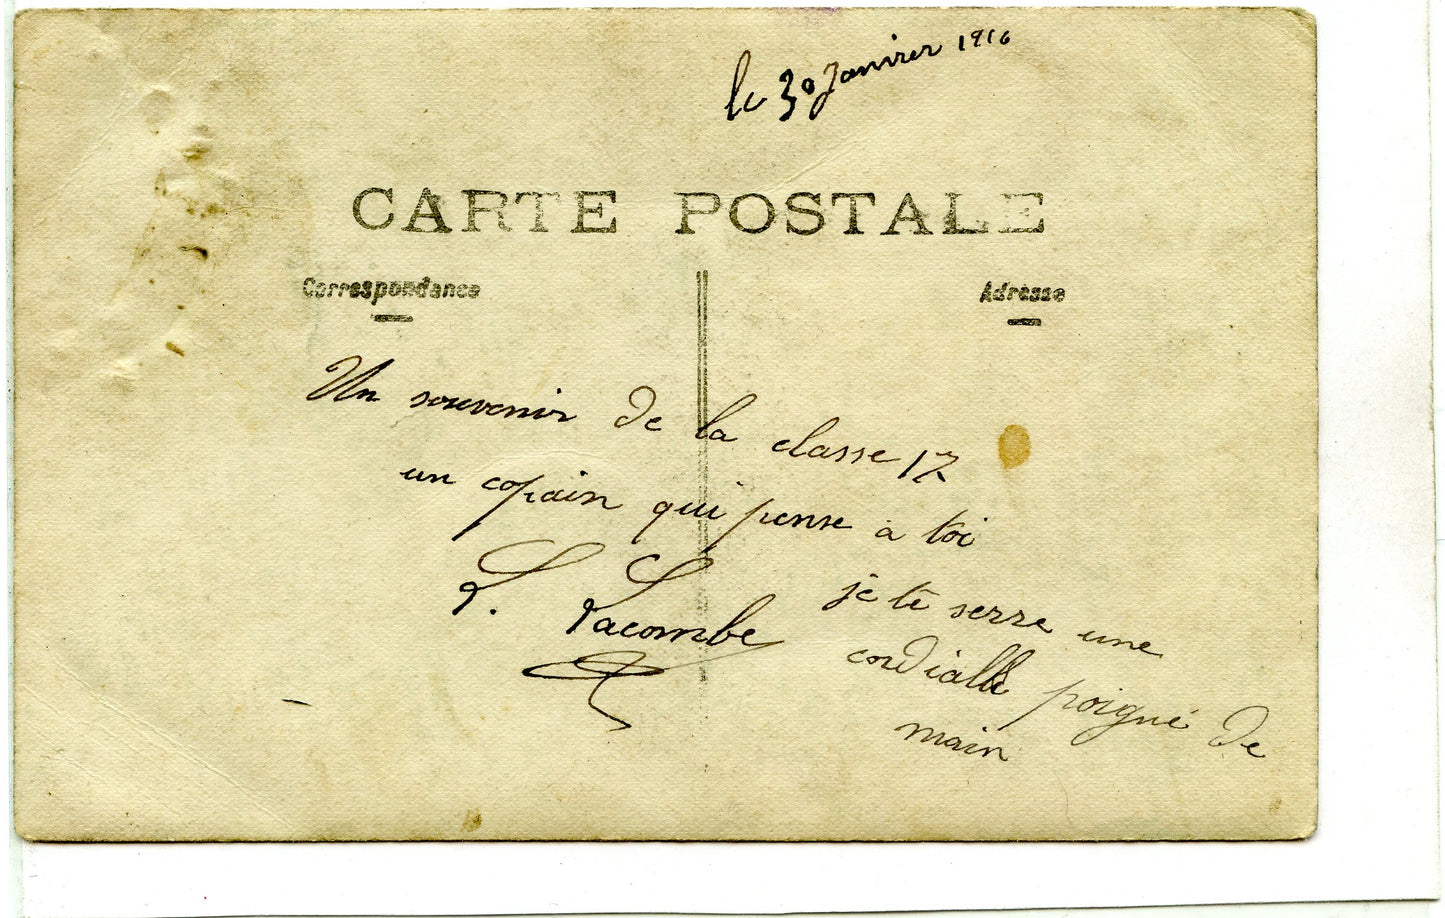 le 30 Janvier 1916
CARTE POSTALE
Correspondance
Adresse
Un souvenir de la classe 17
un copain qui pense à toi
L. Lacombe
je te serre une
cordialle poigné de
main